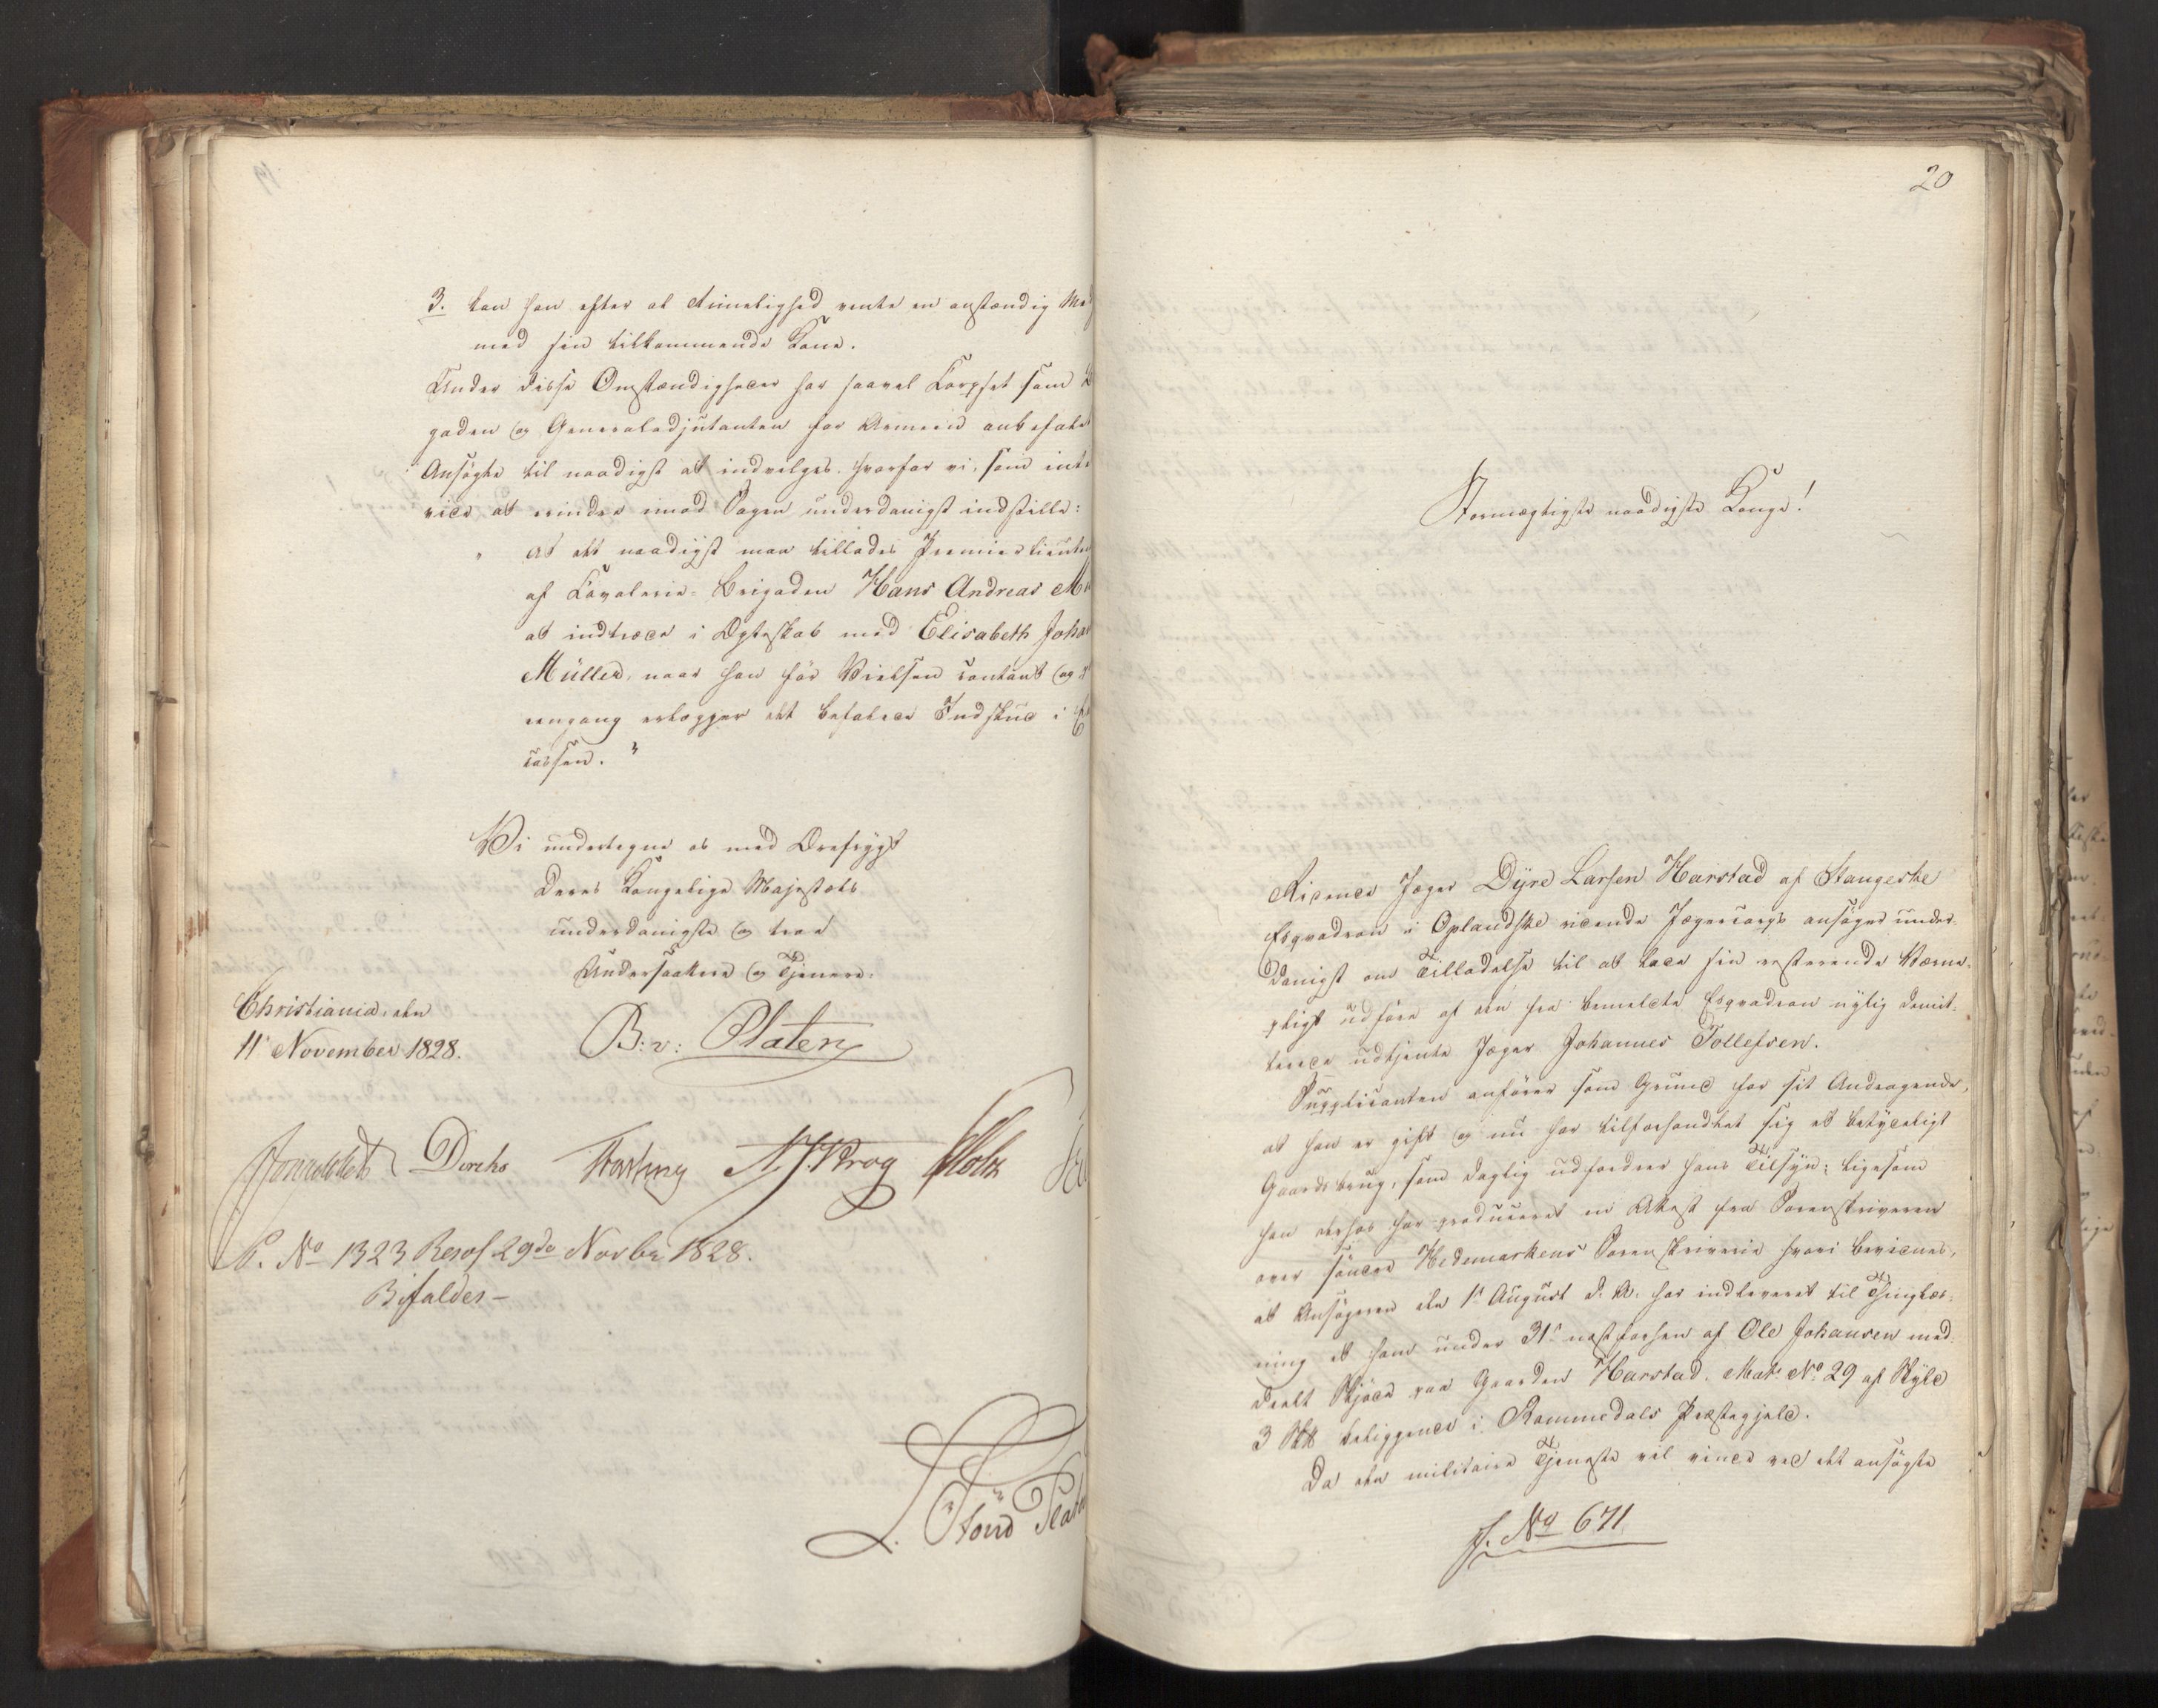 3. kan han efter al Rimelighed vente en anstændig
med sin tilkommende Kone.
Under disse Omstændigheder har saavel Corpset som
gaden og Generaladjutanten for Armeen anbefalet
Ansøgte til naadigst at indvilges, hvorfor vi, som intet
vide at erindre imod Sagen underdanigst indstille:
" at det naadigst maa tillades Premierlieute
af Cavalerie-Brigaden Hans Andreas
at indtræde i Ægteskab med Elisabeth Joha
Müller, naar han før Vielsen contant og
eengang erlægger det befalede Indskud i
cassen. "
Vi undertegne os med Ærefrygt
Deres Kongelige Majestæts
underdanigste og troe
Undersaattere og Tjenere.
Christiania, den
11 November 1828.
B: v: Platen
Sommerhielm Diriks Fasting N J. Krog Holst
P. No 1323 Resol 29de Novbr 1828.
Bifaldes-
20
Stormægtigste naadigste Konge!
Ridende Jæger Dyre Larsen Harstad af Stangeske
Esqvadron i Oplandske ridende Jægercorps ansøger under-
danigst om Tilladelse til at lade sin resterende Værne-
pligt udføre af den fra bemeldte Esqvadron nylig demit-
terede udtjente Jæger Johannes Tollefsen.
Supplicanten anfører som Grund for sit Andragende,
at han er gift og nu har tilforhandlet sig et betydeligt
Gaardsbrug, som daglig udfordrer hans Tilsyn; ligesom
han derhos har produceret en Attest fra Sorenskriveren
over søndre Hedemarkens Sorenskriverie hvori bevidnes,
at Ansøgeren den 1ste August d. A. har indleveret til Thinglæs-
ning et ham under 31te næstforhen af Ole Johansen med-
deelt Skjøde paa Gaarden Harstad, Mat: No 29 af Skyld
3 beliggende i Rommedals Præstegjeld.
Da den militaire Tjeneste vil vinde ved det ansøgte
J. No 671